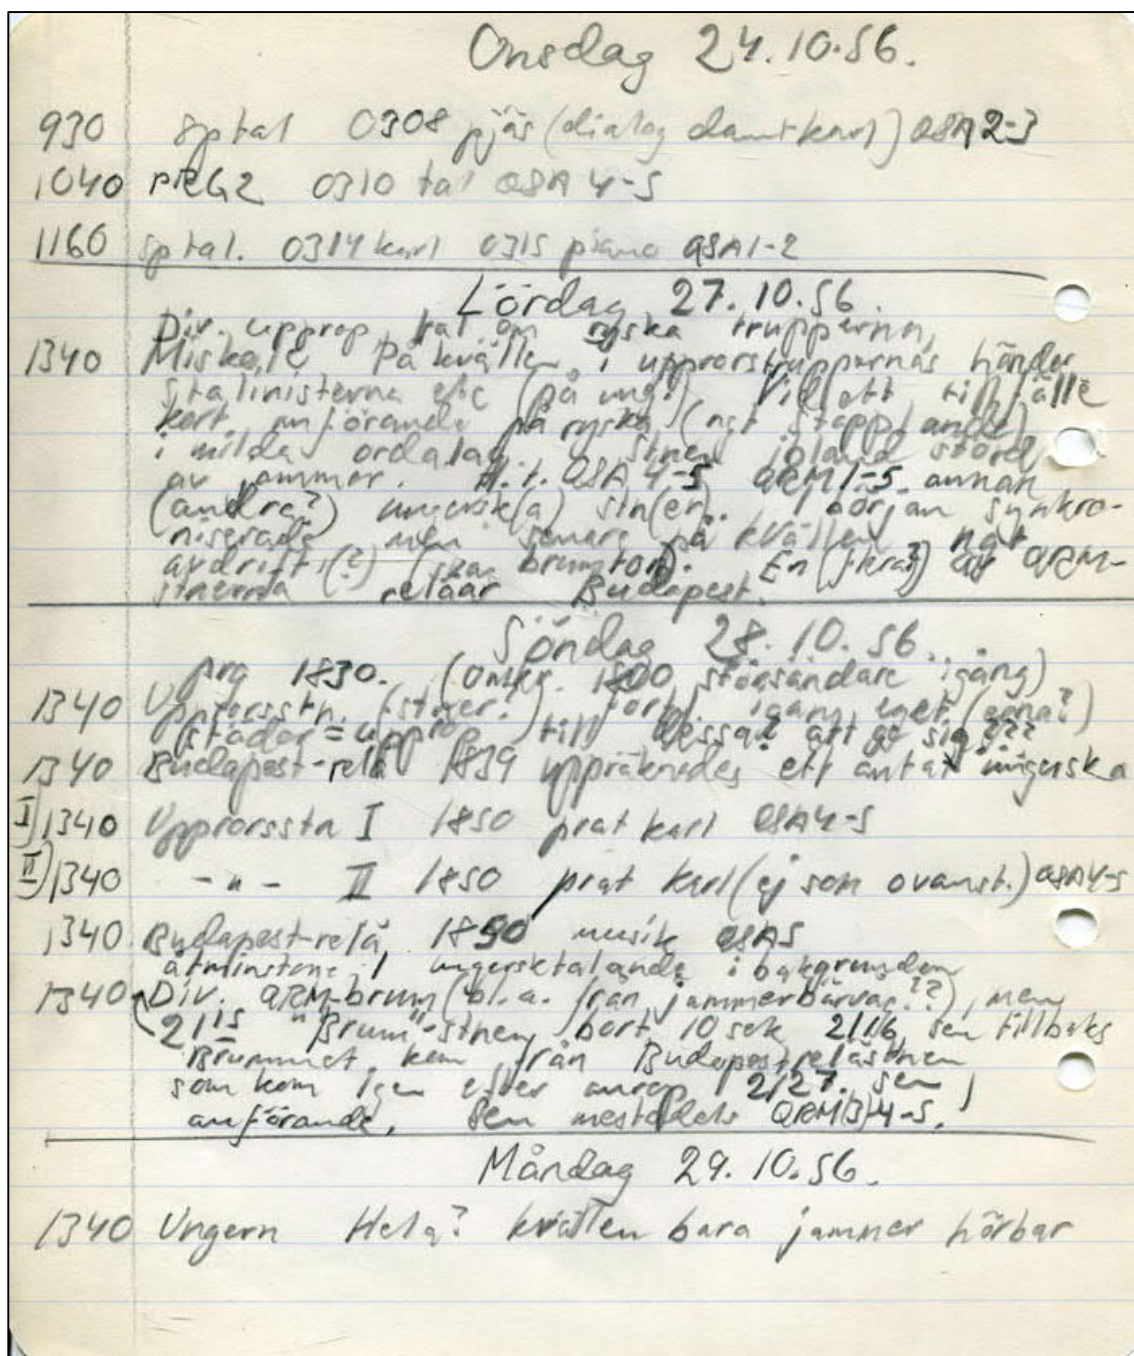 Onsdag 24.10.56.
930 sptal 0308 pjäs (dialog dam+karl) QSA 2-3
1040 PRG2 0310 tal QSA 4-5
1160 sptal. 0314 karl 0315 piano QSA1-2
Lördag 27.10.56.
Div. upprop, tal om ryska trupperna,
1340 Miskolc På kvällen i upprorstruppernas händer
stalinisterna etc (på ung.) Vid ett tillfälle
kort anförande på ryska (ngt stapplande)
i milda ordalag. Stnen ibland störd
av jammer. H.t. QSA 4-5 QRM1-5. annan
(andra?) ungersk(a) stn(er). I början synkro-
niserade men senare på kvällen ngt
avdrift (?) (ska brumton). En (flera?) av QRM-
stnerna relär Budapest.
Söndag 28.10.56.
prg 1830. (omkr. 1800 störsändare igång)
1340 Upprorsstn. (stner?) forts. igång eget (egna?)
städer = upprop till dessa? att ge sig???
1340 Budapest-relä 1839 uppräknades ett antal ungerska
I) 1340 Upprorsstn I 1850 prat karl QSA4-5
II) 1340 -"- II 1850 prat karl (ej som ovanst.) QSA4-5
1340 Budapest-relä 1850 musik QSA5
åtminstone 1 ungersktalande i bakgrunden
1340 Div. QRM-brum (bl.a. från jammerbärvåg??), men
2115 "Brum"-stnen bort 10 sek 2116, sen tillbaks
Brummet kom från Budapest-relästnen
som kom igen efter anrop 2127. sen
anförande, Sen mestadels QRM(3)-4-5.
Måndag 29.10.56.
1340 Ungern Hela? kvällen bara jammer hörbar